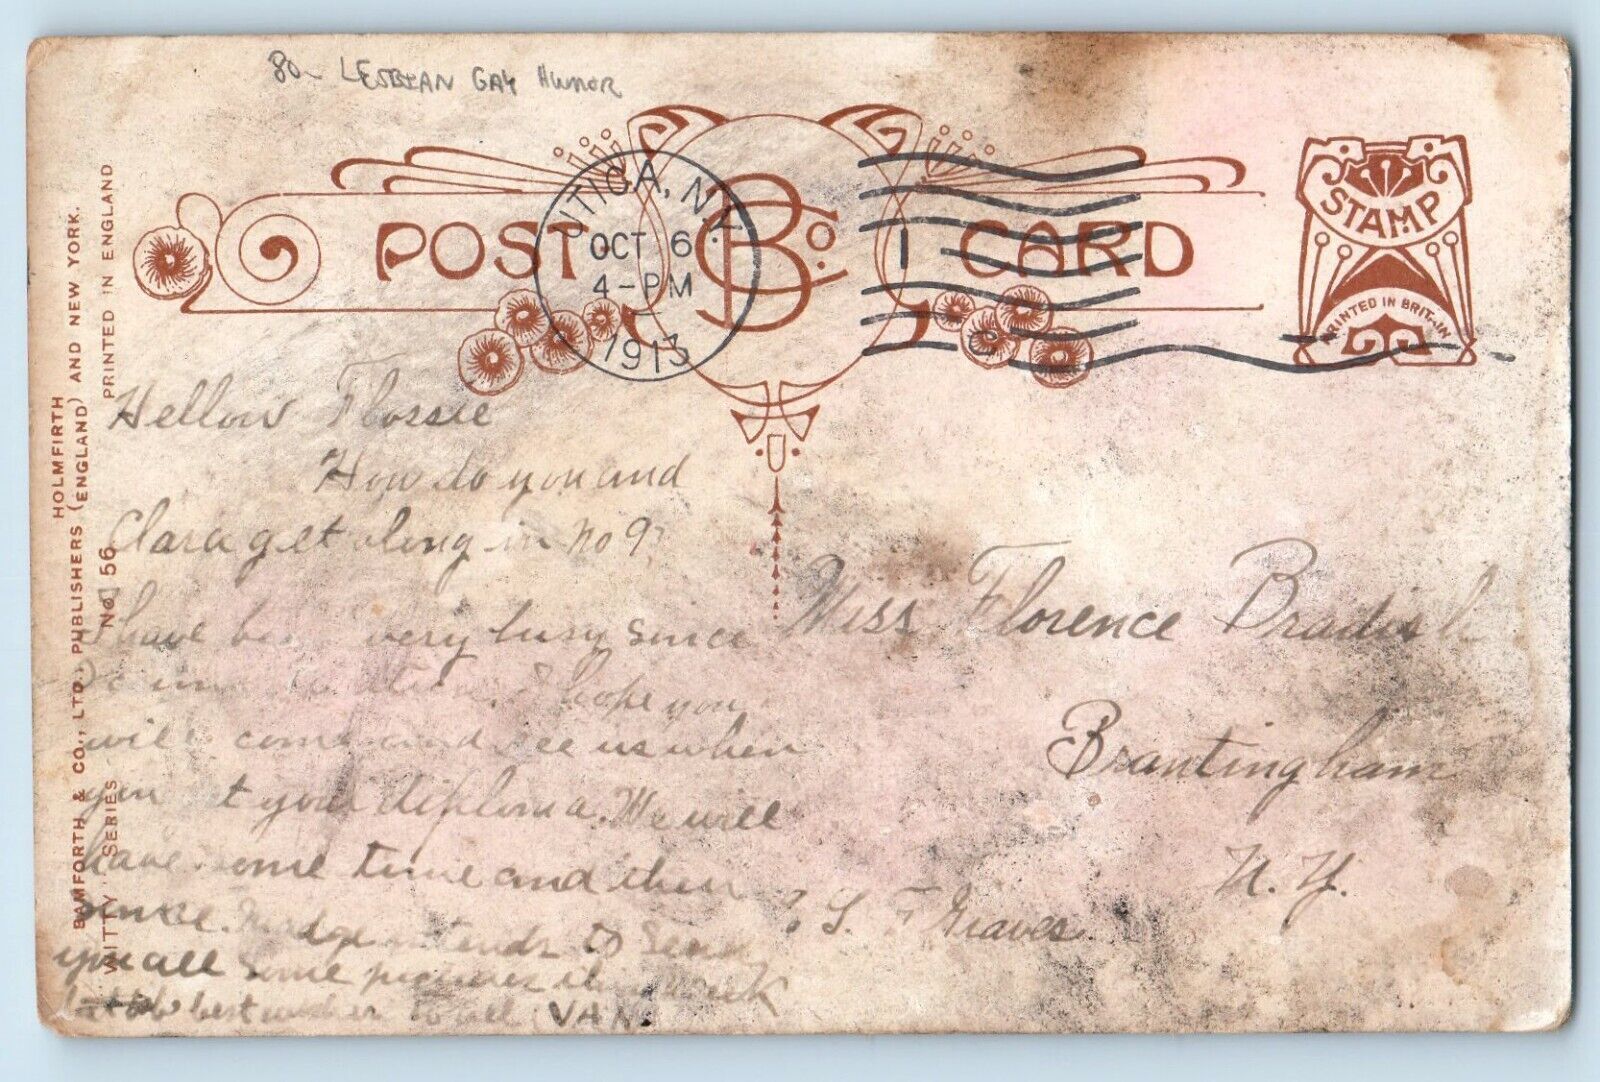 80- LESBIAN GAY HUMOR
POST CARD
B Co.
UTICA, N.Y.
OCT 6
4-PM
1913
1
C
STAMP
PRINTED IN BRITAIN
HOLMFIRTH
BAMFORTH & CO., LTD., PUBLISHERS (ENGLAND) AND NEW YORK.
"WITTY" SERIES No 56 PRINTED IN ENGLAND
Hellow Flossie
How do you and
Clara get along in no 9?
I have been very busy since
I hope you
will come and see us when
you get your diploma. We will
have some time and then
some. Madge intends to send
you all some pictures this week
best wishes to all VAN.
Miss Florence Bradish
Brantingham
N. Y.
% L F Graves